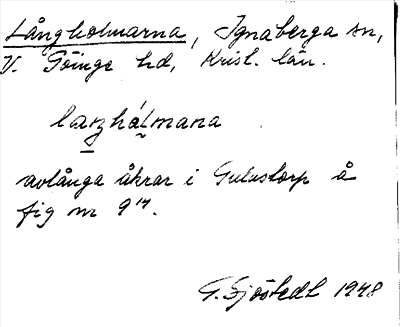 Långholmarna, Ignaberga sn,
V. Göinge hd, Krist. län.
avlånga åkrar i Gulastorp å
fig nr 9¹⁴.
G. Sjöstedt 1948